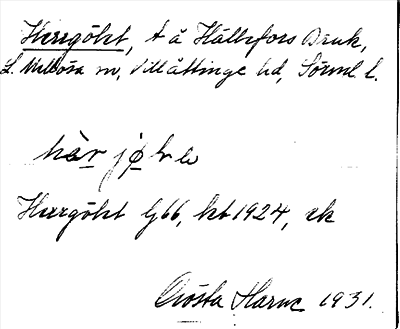 Herrgölet, t å Hällefors Bruk,
L. Mellösa sn, Villåttinge hd, Sörml l.
hàr jø̀ le
Herrgölet G66, kb 1924, ek
Gösta Harne 1931.